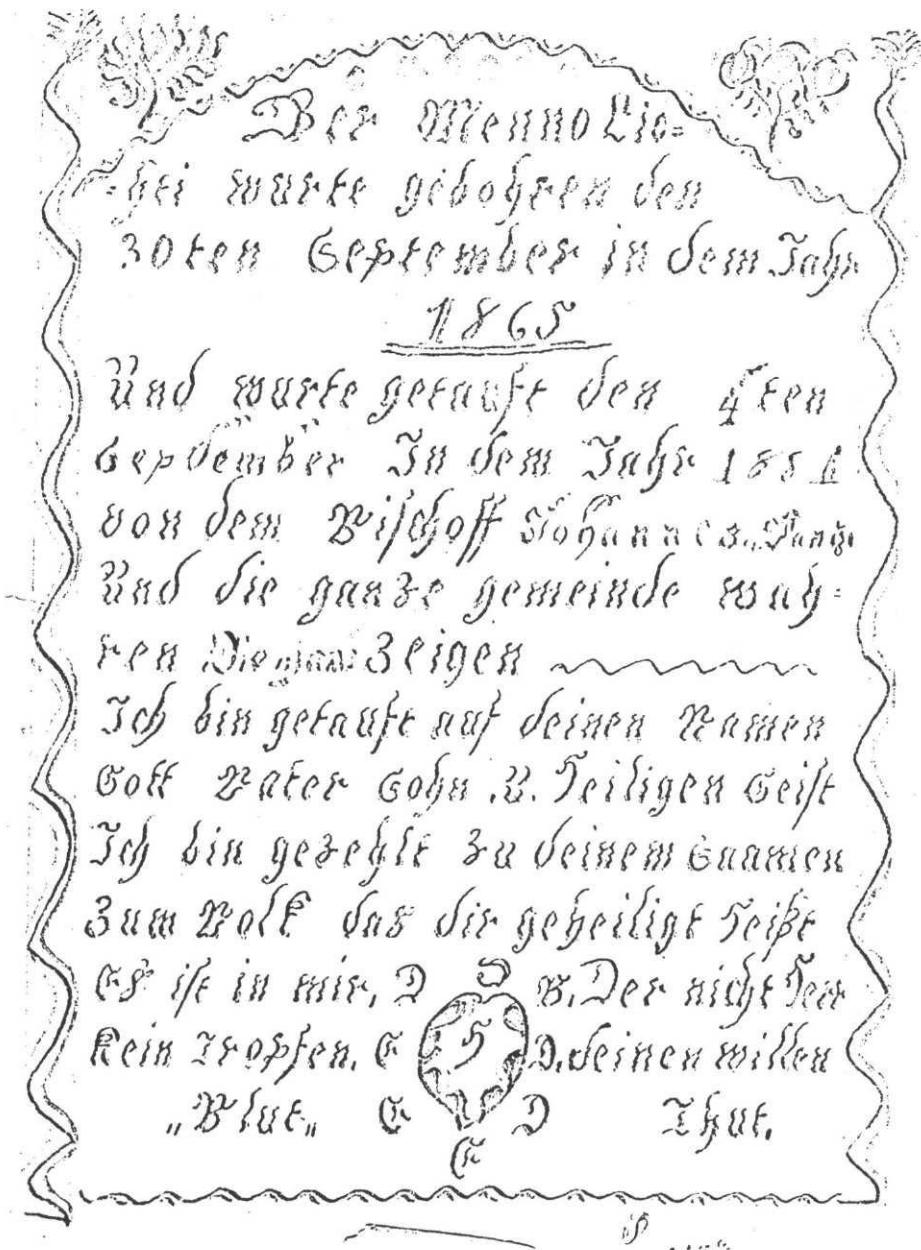 Der Menno Lie=
=hti wurte gebohren den
30ten September in dem Jahr
1865
Und wurte getauft den 4ten
Sepdember In dem Jahr 1881
von dem Bischoff Johannes
Und die ganze gemeinde wah=
ren Zeigen
Ich bin getauft auf deinen Namen
Gott Vater Sohn .U. Heiligen Geist
Ich bin gezehlt zu deinem Saamen
Zum Volk das dir geheiligt Heißt
Es ist in mir, D D B, Der nicht Herr
Kein Tropfen. E H D, deinen willen
„Blut„ E D Thut.
E